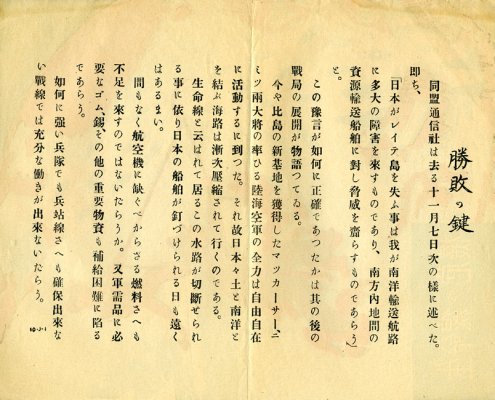 勝敗の鍵
同盟通信社は去る十一月七日次の様に述べた。
即ち、
「日本がレイテ島を失ふ事は我が南洋輸送航路
に多大の障害を來すものであり、南方內地間の
資源輸送船舶に對し脅威を齎らすものであらう」
と。
この豫言が如何に正確であつたかは其の後の
戰局の展開が物語つてゐる。
今や比島の新基地を獲得したマッカーサー、ニ
ミツ兩大將の率ひる陸海空軍の全力は自由自在
に活動するに到つた。それ故日本々土と南洋と
を結ぶ海路は漸次壓縮されて行くのである。
生命線と云はれて居るこの水路が切斷せられ
る事に依り日本の船舶が釘づけられる日も遠く
はあるまい。
間もなく航空機に缺ぐべからざる燃料さへも
不足を來すのではないだらうか。又軍需品に必
要なゴム、錫その他の重要物資も補給困難に陷る
であらう。
如何に强い兵隊でも兵站線さへも確保出來な
い戰線では充分な働きが出來ないだらう。
10-J-1